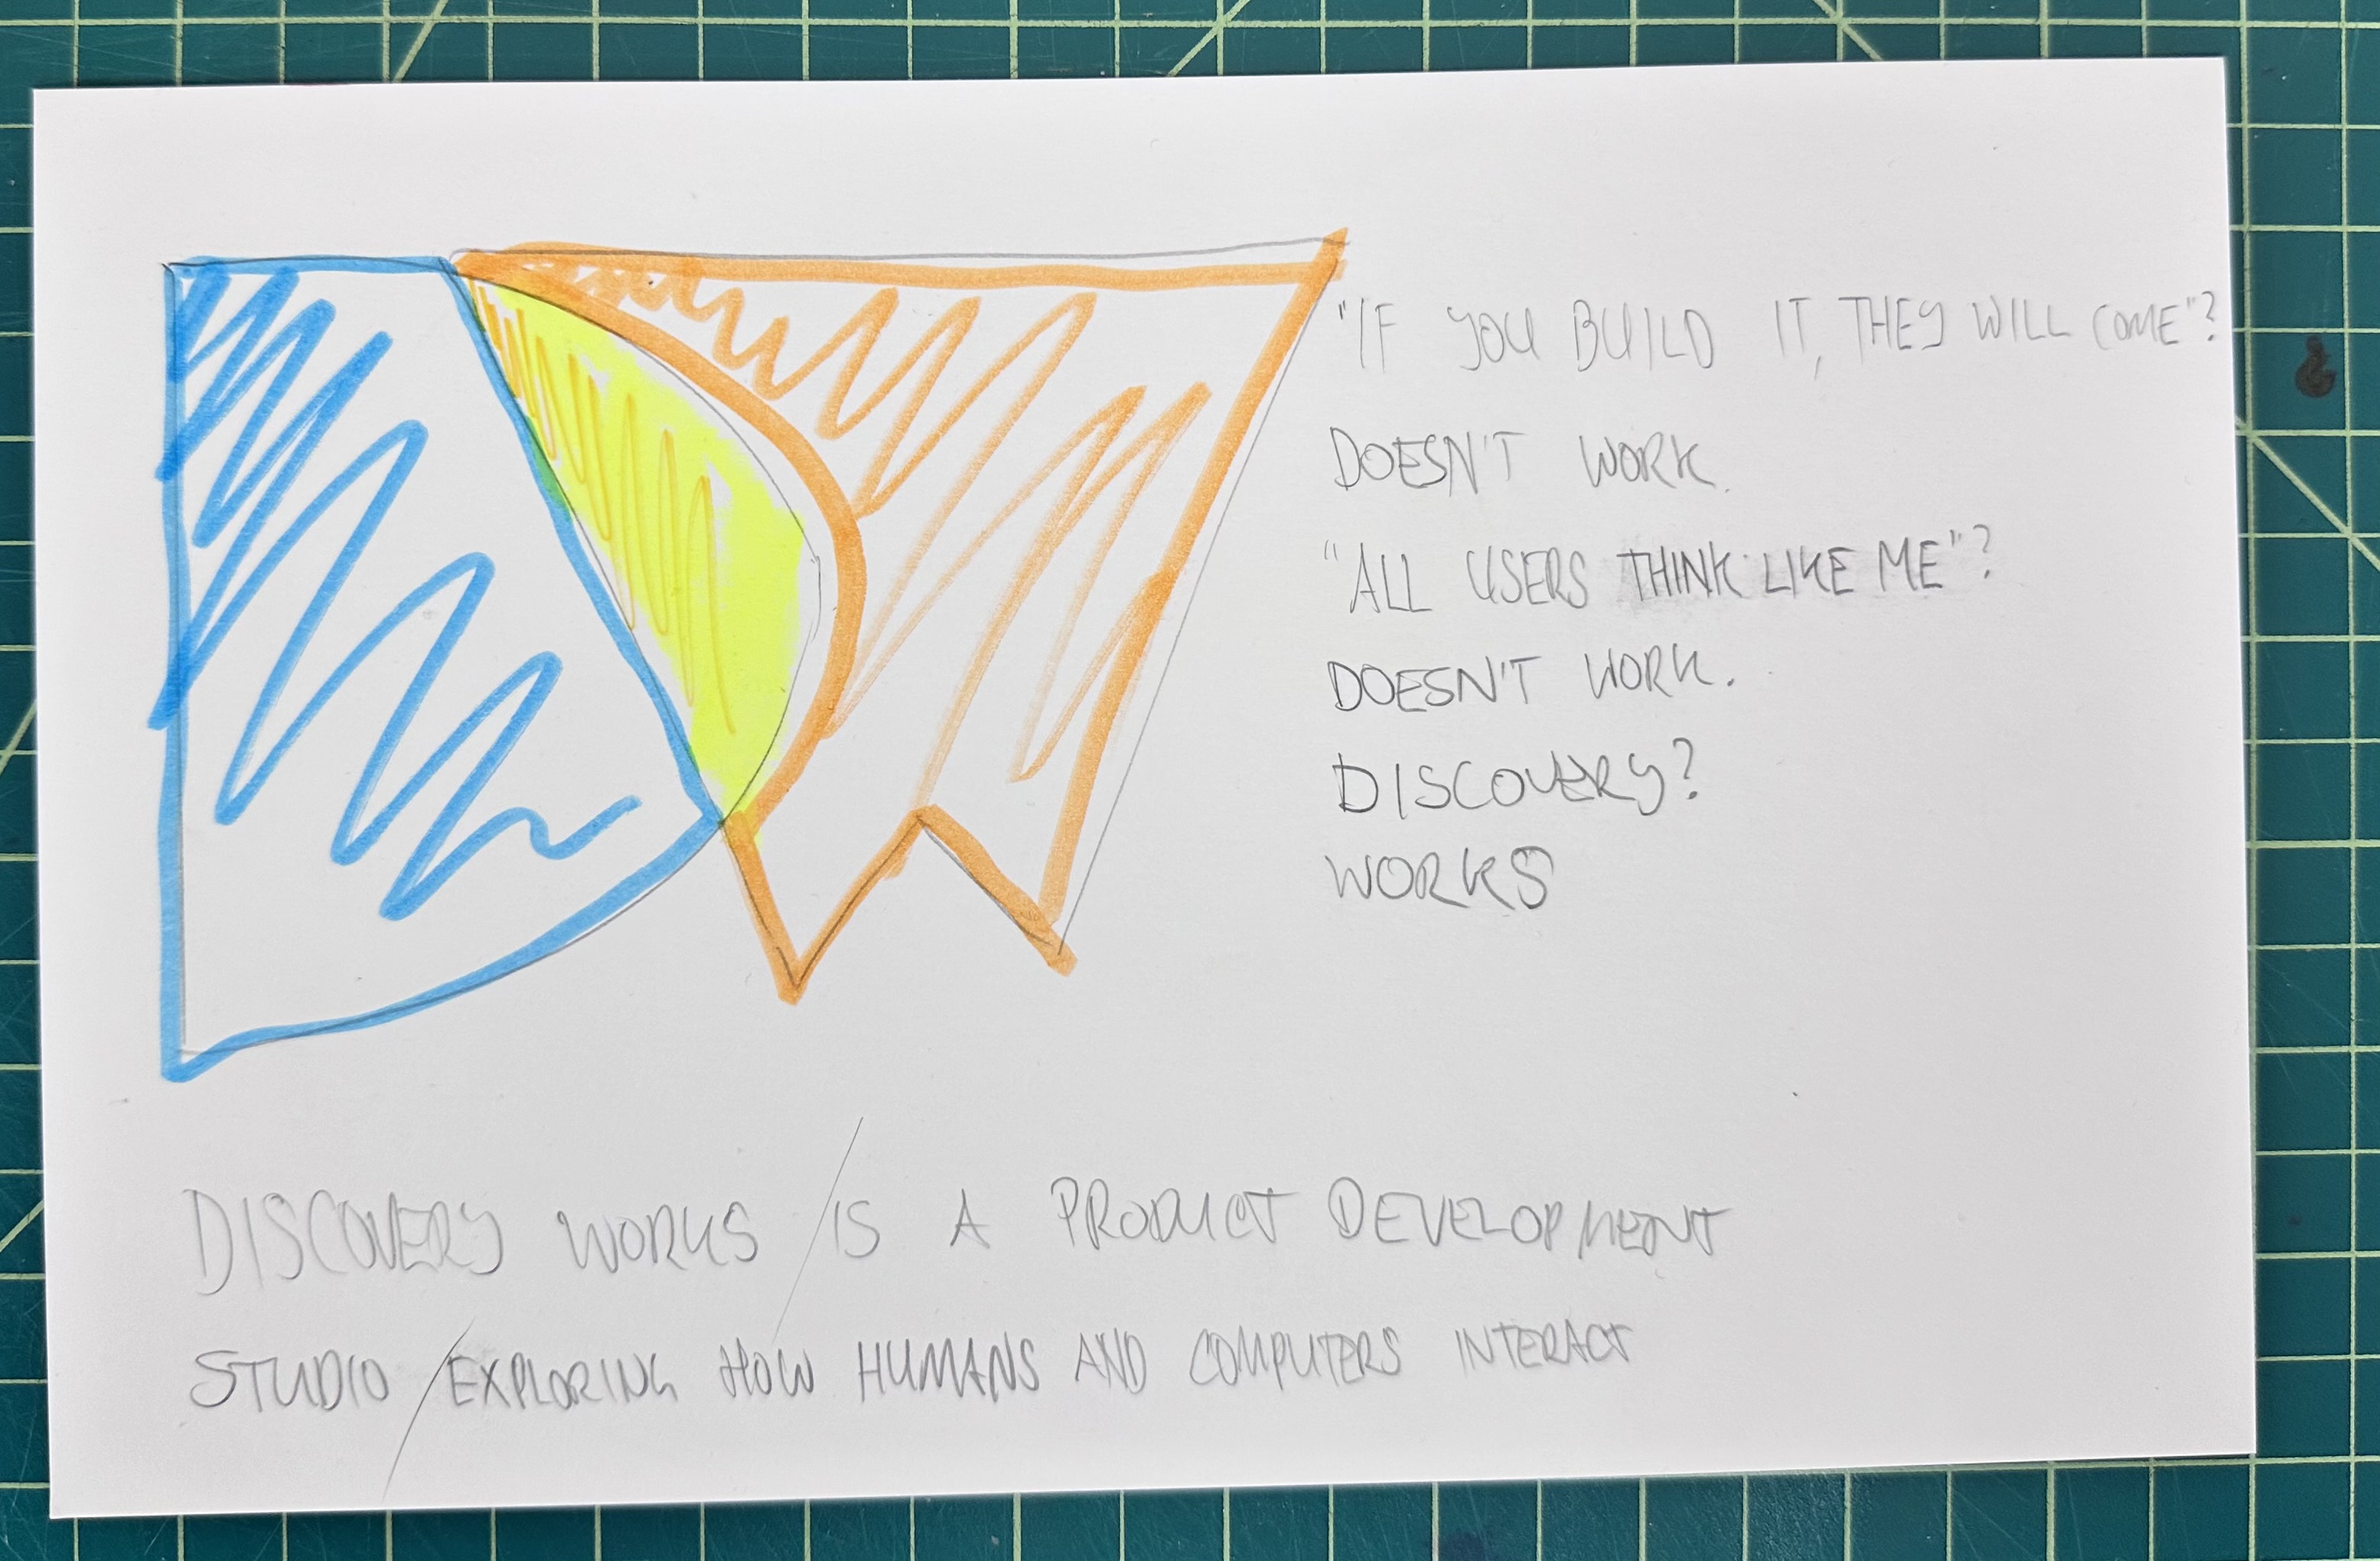 "IF YOU BUILD IT, THEY WILL COME"?
DOESN'T WORK.
"ALL USERS THINK LIKE ME"?
DOESN'T WORK.
DISCOVERY?
WORKS
DISCOVERY WORKS / IS A PRODUCT DEVELOPMENT
STUDIO / EXPLORING HOW HUMANS AND COMPUTERS INTERACT